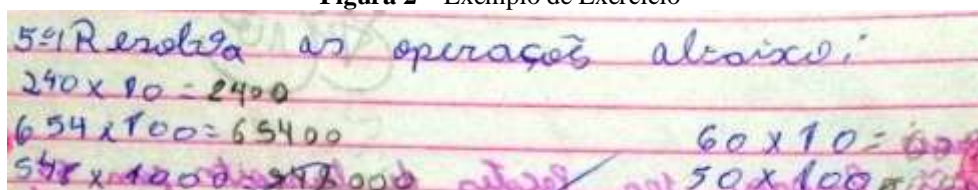 Figura 2 – Exemplo de Exercício
5ª) Resolva as operações abaixo:
240 x 10 = 2400
654 x 100 = 65400
60 x 10 =
548 x 1000 = 548000
50 x 100 =